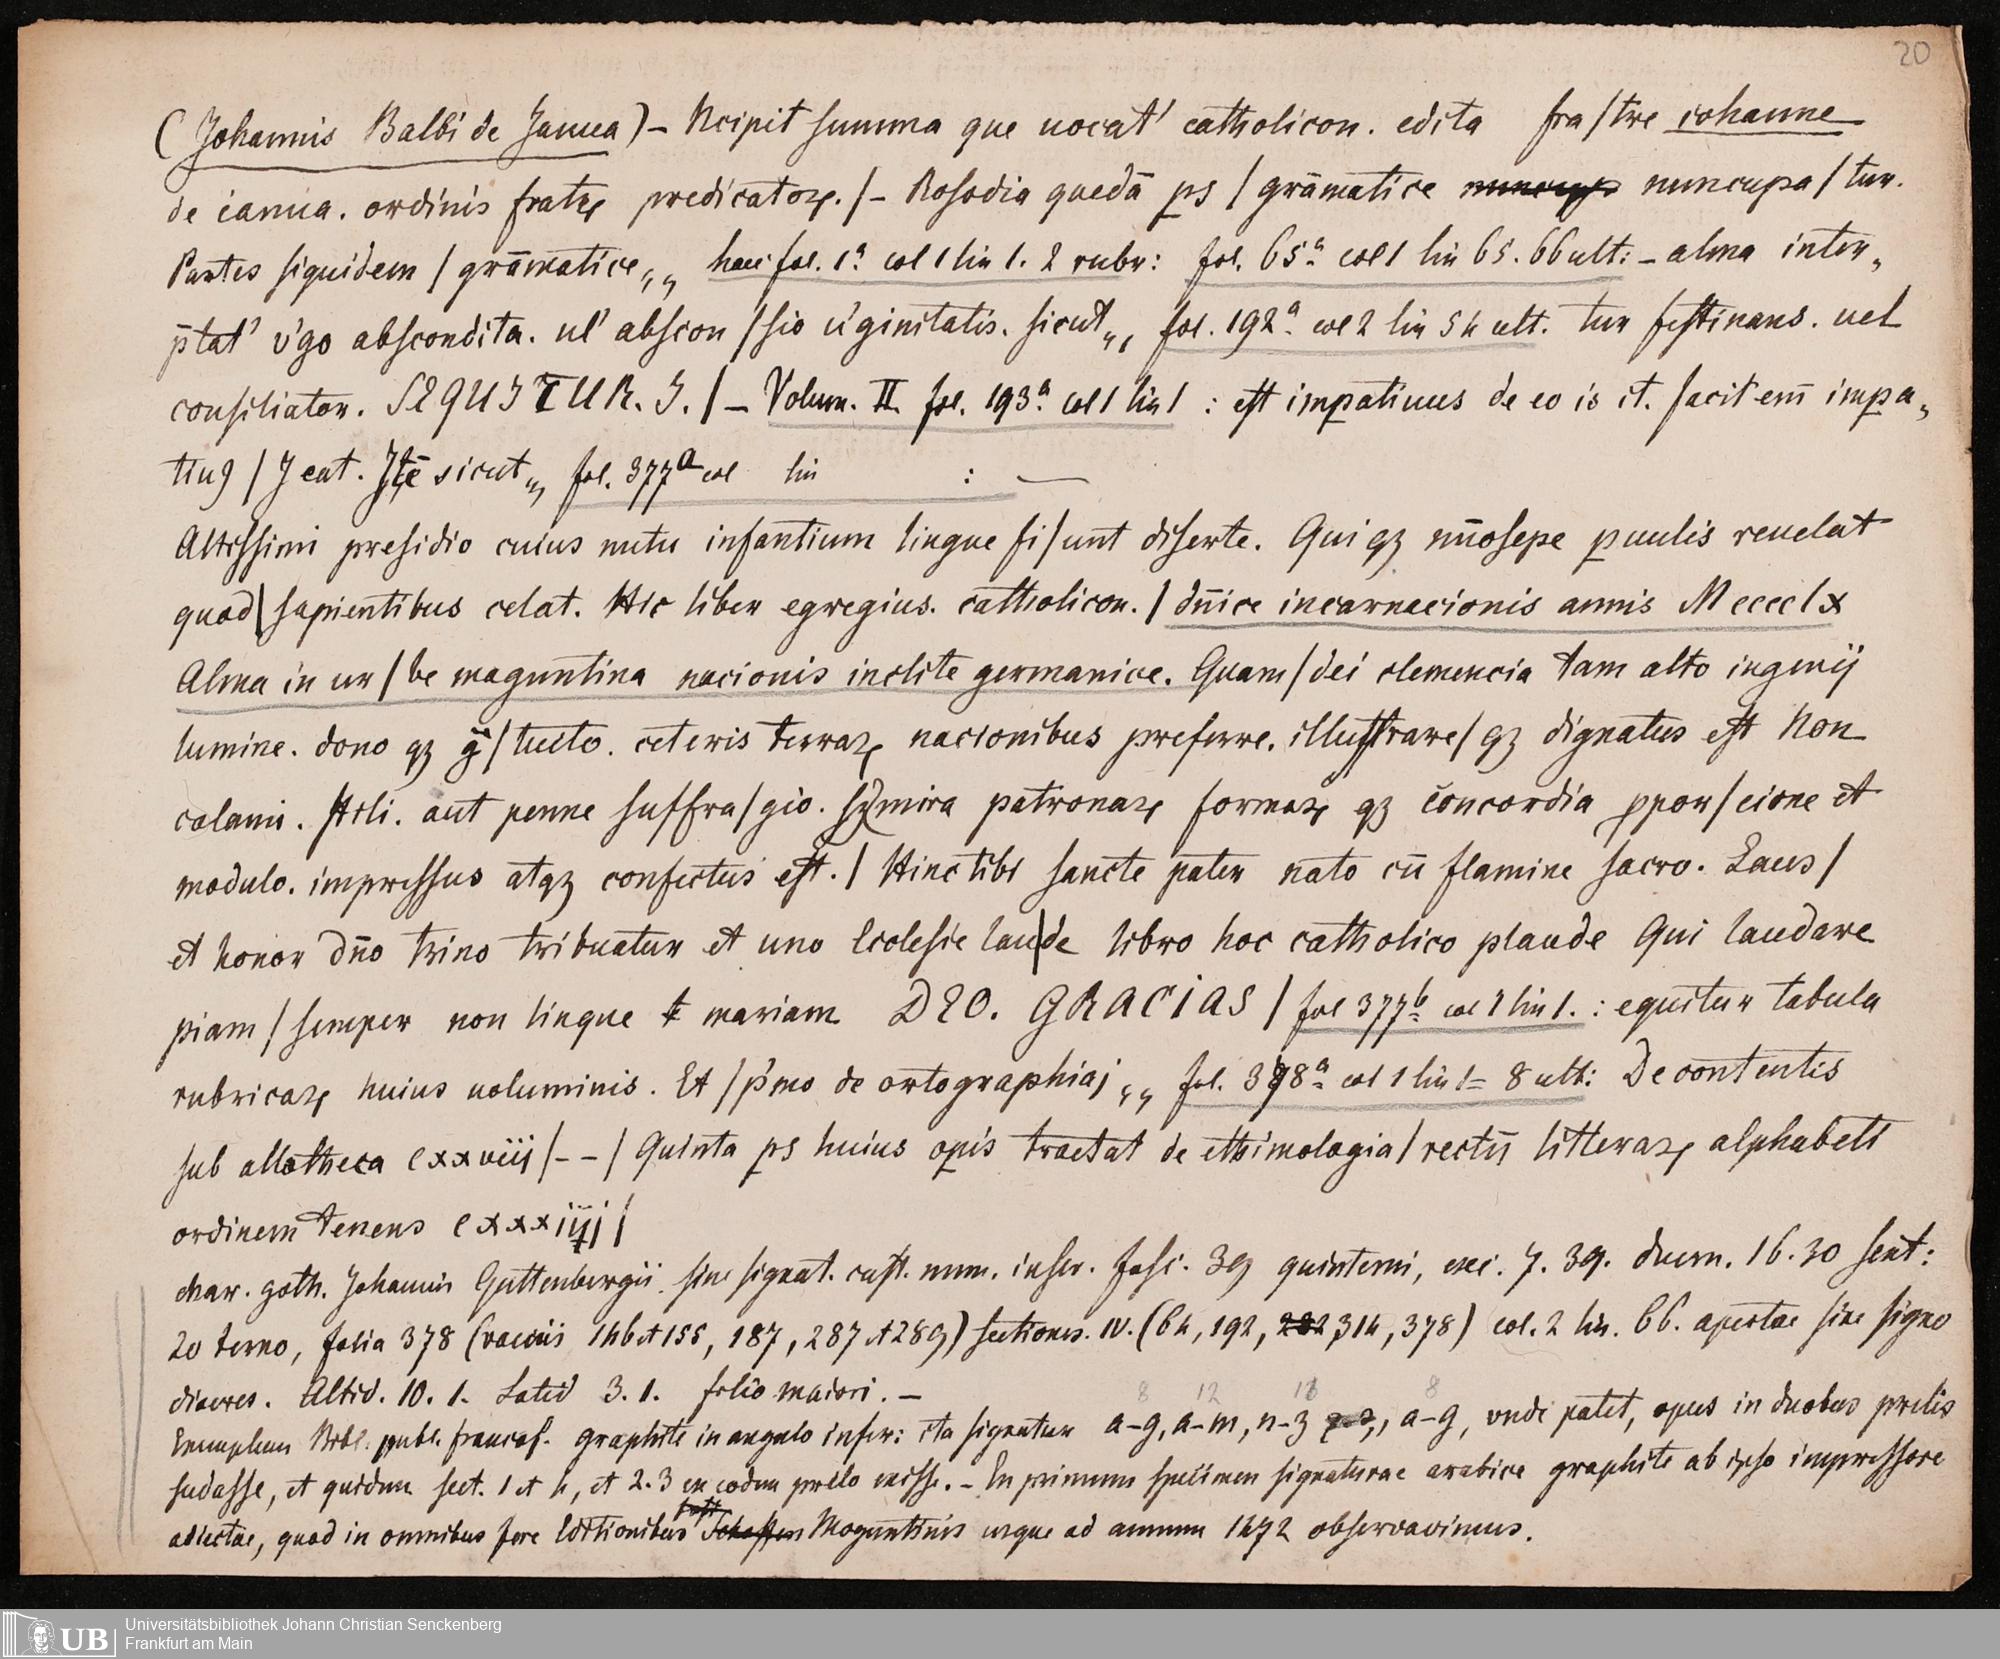 20
(Johannis Balbi de Janua) – Ncipit summa que uocat' catholicon. edita fra/tre iohanne
de ianua. ordinis fratrꝝ predicatoꝝ. / – Rosodia quedā ps / grāmatice nuncupa/tur.
Partes siquidem / grāmatice,, haec fol. 1ª col 1 lin 1. 2 rubr: fol. 65ª col 1 lin 65. 66 ult: – alma inter„
p̄tat' v'go abscondita. ul' abscon/sio u'ginitatis. sicut„ fol. 192ª col 2 lin 54 ult. tur festinans. uel
consiliator. SEQUITUR. I. / – Volum. II fol. 193ª col 1 lin 1 : est impatiuus de eo is it. facit em̄ impa„
tiuꝰ / J eat. Jtē sicut„ fol. 377ª col lin : —
Altissimi presidio cuius nutu infantium lingue fi/unt diserte. Qui qꝫ nūosepe puulis reuelat
quod / sapientibus celat. Hic liber egregius. catholicon. / dn̄ice incarnacionis annis Mcccclx
Alma in ur/be maguntina nacionis inclite germanice. Quam / dei clemencia tam alto ingenij
lumine. dono qꝫ g̈/tuito. ceteris terraꝝ nacionibus preferre. illustrare / qꝫ dignatus est Non
calami. stili. aut penne suffra/gio. sꝫ mira patronaꝝ formaꝝ qꝫ concordia ꝓpor/cione et
modulo. impressus atqꝫ confectus est. / Hinc tibi sancte pater nato cū flamine sacro. Laus /
et honor dn̄o trino tribuatur et uno Ecclesie lau/de libro hoc catholico plaude Qui laudare
piam / semper non lingue mariam DEO. GRACIAS / fol 377ᵇ col 1 lin 1. : equitur tabula
rubricaꝝ huius uoluminis. Et / p'mo de ortographia;,, fol. 378ª col 1 lin 1 = 8 ult: De contentis
sub allotheca cxxviij / – – / Quinta ps huius opis tractat de ethimologia / rectū litteraꝝ alphabeti
ordinem tenens cxxxiiij /
char. goth. Johannis Guttenbergii sine signat. cust. num. inscr. fasc. 39 quinterni, exc. 7. 39. duern. 16. 30 sext:
20 terno, folia 378 (vacuis 146 et 155, 187, 287 et 289) sectiones. IV. (64, 192, 314, 378) col. 2 lin. 66. apertae sine signo
diaeres. Altid. 10. 1. Latid 3. 1. folio maiori. –
8 12 8
Exemplum Bibl. publ. francof. graphite in angulo infer: ita signatur a–g, a–m, n–z, a–g, unde patet, opus in duobus prelis
sudasse, et quidem sect. 1 et 4, et 2. 3 ex eodem prelo exisse. – En primum specimen signaturae arabice graphite ab ipso impressore
adiectae, quod in omnibus fere Editionibus Moguntinis usque ad annum 1472 observavimus.
UB
Universitätsbibliothek Johann Christian Senckenberg
Frankfurt am Main